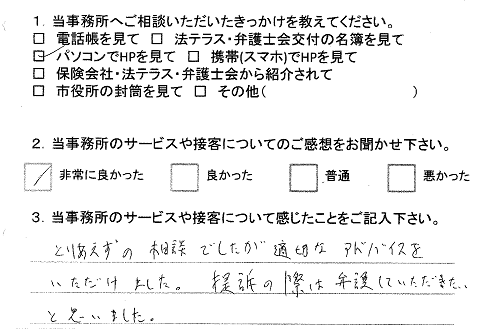 1. 当事務所へご相談いただいたきっかけを教えてください。
□ 電話帳を見て □ 法テラス・弁護士会交付の名簿を見て
☑ パソコンでHPを見て □ 携帯(スマホ)でHPを見て
□ 保険会社・法テラス・弁護士会から紹介されて
□ 市役所の封筒を見て □ その他( )
2. 当事務所のサービスや接客についてのご感想をお聞かせ下さい。
☑ 非常に良かった □ 良かった □ 普通 □ 悪かった
3. 当事務所のサービスや接客について感じたことをご記入下さい。
とりあえずの相談でしたが適切なアドバイスを
いただけました。提訴の際は弁護していただきたい
と思いました。